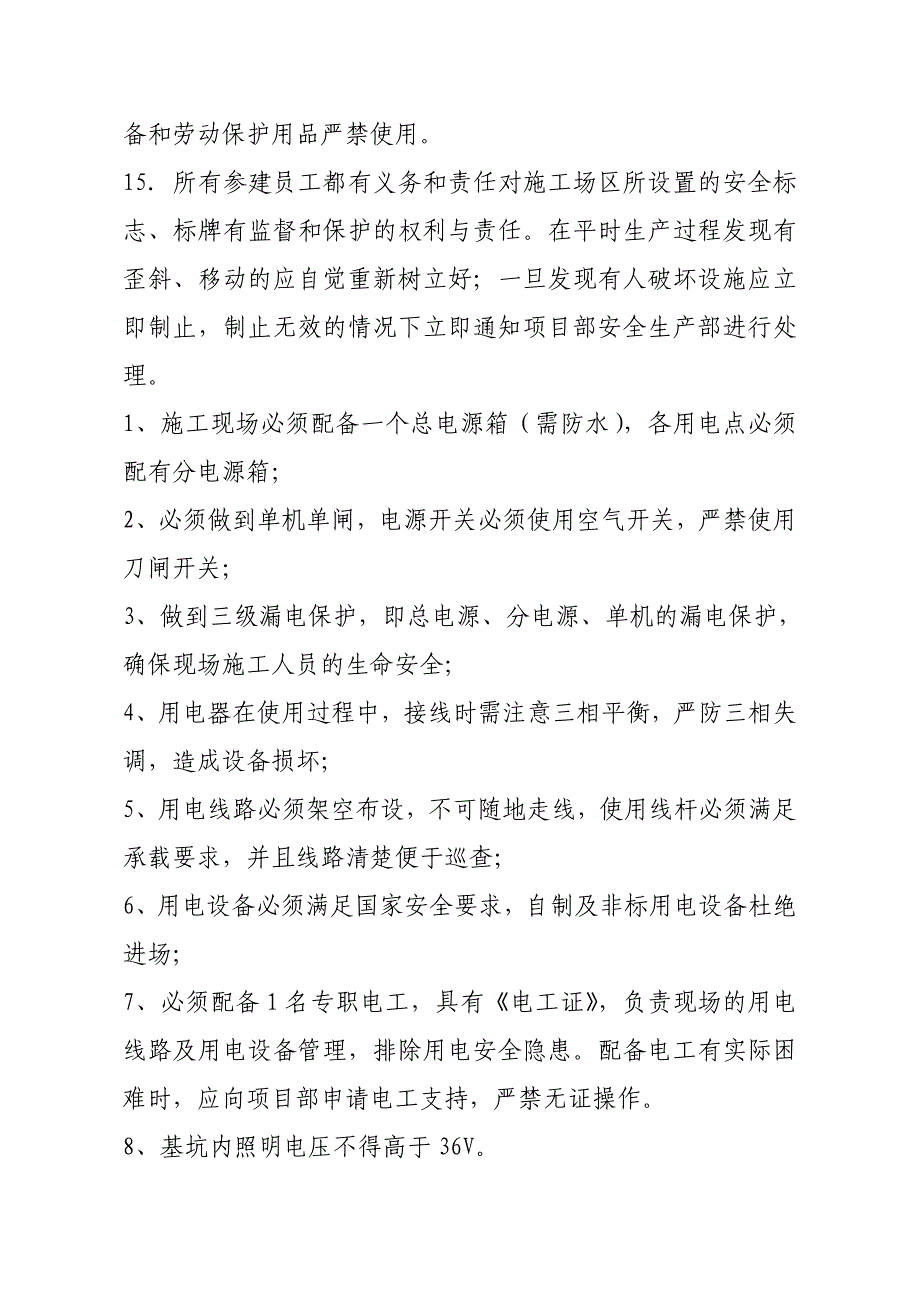 备和劳动保护用品严禁使用。
15. 所有参建员工都有义务和责任对施工场区所设置的安全标
志、标牌有监督和保护的权利与责任。在平时生产过程发现有
歪斜、移动的应自觉重新树立好；一旦发现有人破坏设施应立
即制止，制止无效的情况下立即通知项目部安全生产部进行处
理。
1、施工现场必须配备一个总电源箱（需防水），各用电点必须
配有分电源箱；
2、必须做到单机单闸，电源开关必须使用空气开关，严禁使用
刀闸开关；
3、做到三级漏电保护，即总电源、分电源、单机的漏电保护，
确保现场施工人员的生命安全；
4、用电器在使用过程中，接线时需注意三相平衡，严防三相失
调，造成设备损坏；
5、用电线路必须架空布设，不可随地走线，使用线杆必须满足
承载要求，并且线路清楚便于巡查；
6、用电设备必须满足国家安全要求，自制及非标用电设备杜绝
进场；
7、必须配备 1 名专职电工，具有《电工证》，负责现场的用电
线路及用电设备管理，排除用电安全隐患。配备电工有实际困
难时，应向项目部申请电工支持，严禁无证操作。
8、基坑内照明电压不得高于 36V。